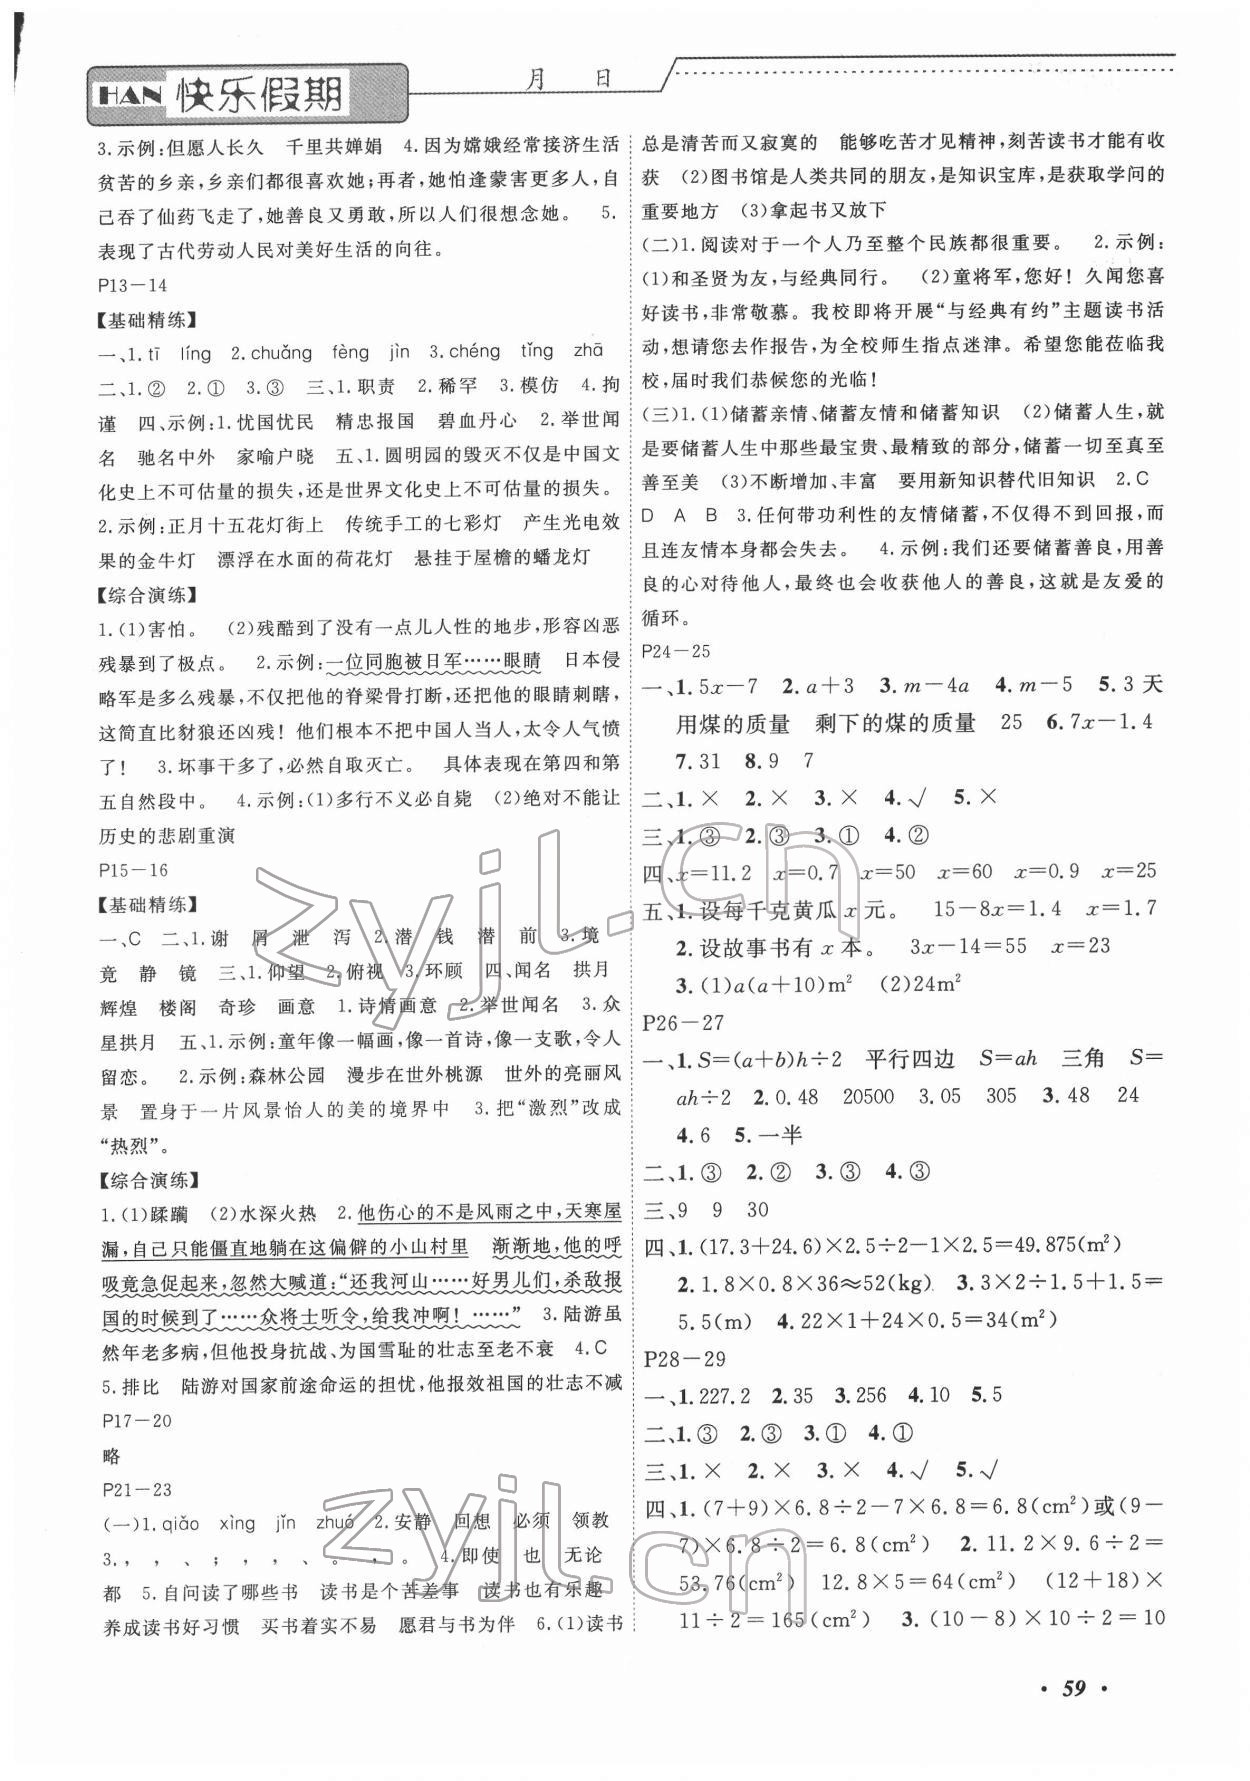 HAN 快乐假期
月 日
3.示例:但愿人长久 千里共婵娟 4.因为嫦娥经常接济生活
贫苦的乡亲,乡亲们都很喜欢她;再者,她怕逢蒙害更多人,自
己吞了仙药飞走了,她善良又勇敢,所以人们很想念她。 5.
表现了古代劳动人民对美好生活的向往。
P13-14
【基础精练】
一、1.tī líng 2.chuǎng fèng jìn 3.chéng tǐng zhā
二、1.② 2.① 3.③ 三、1.职责 2.稀罕 3.模仿 4.拘
谨 四、示例:1.忧国忧民 精忠报国 碧血丹心 2.举世闻
名 驰名中外 家喻户晓 五、1.圆明园的毁灭不仅是中国文
化史上不可估量的损失,还是世界文化史上不可估量的损失。
2.示例:正月十五花灯街上 传统手工的七彩灯 产生光电效
果的金牛灯 漂浮在水面的荷花灯 悬挂于屋檐的蟠龙灯
【综合演练】
1.(1)害怕。 (2)残酷到了没有一点儿人性的地步,形容凶恶
残暴到了极点。 2.示例:一位同胞被日军……眼睛 日本侵
略军是多么残暴,不仅把他的脊梁骨打断,还把他的眼睛刺瞎,
这简直比豺狼还凶残!他们根本不把中国人当人,太令人气愤
了! 3.坏事干多了,必然自取灭亡。 具体表现在第四和第
五自然段中。 4.示例:(1)多行不义必自毙 (2)绝对不能让
历史的悲剧重演
P15-16
【基础精练】
一、C 二、1.谢 屑 泄 泻 2.潜 钱 潜 前 3.境
竟 静 镜 三、1.仰望 2.俯视 3.环顾 四、闻名 拱月
辉煌 楼阁 奇珍 画意 1.诗情画意 2.举世闻名 3.众
星拱月 五、1.示例:童年像一幅画,像一首诗,像一支歌,令人
留恋。 2.示例:森林公园 漫步在世外桃源 世外的亮丽风
景 置身于一片风景怡人的美的境界中 3.把“激烈”改成
“热烈”。
【综合演练】
1.(1)蹂躏 (2)水深火热 2.他伤心的不是风雨之中,天寒屋
漏,自己只能僵直地躺在这偏僻的小山村里 渐渐地,他的呼
吸竟急促起来,忽然大喊道:“还我河山……好男儿们,杀敌报
国的时候到了……众将士听令,给我冲啊!……” 3.陆游虽
然年老多病,但他投身抗战、为国雪耻的壮志至老不衰 4.C
5.排比 陆游对国家前途命运的担忧,他报效祖国的壮志不减
P17-20
略
P21-23
(一)1.qiǎo xìng jǐn zhuó 2.安静 回想 必须 领教
3., , 、 ; , , 、 。 , 。 4.即使 也 无论
都 5.自问读了哪些书 读书是个苦差事 读书也有乐趣
养成读书好习惯 买书着实不易 愿君与书为伴 6.(1)读书
总是清苦而又寂寞的 能够吃苦才见精神,刻苦读书才能有收
获 (2)图书馆是人类共同的朋友,是知识宝库,是获取学问的
重要地方 (3)拿起书又放下
(二)1.阅读对于一个人乃至整个民族都很重要。 2.示例:
(1)和圣贤为友,与经典同行。 (2)童将军,您好!久闻您喜
好读书,非常敬慕。我校即将开展“与经典有约”主题读书活
动,想请您去作报告,为全校师生指点迷津。希望您能莅临我
校,届时我们恭候您的光临!
(三)1.(1)储蓄亲情、储蓄友情和储蓄知识 (2)储蓄人生,就
是要储蓄人生中那些最宝贵、最精致的部分,储蓄一切至真至
善至美 (3)不断增加、丰富 要用新知识替代旧知识 2.C
D A B 3.任何带功利性的友情储蓄,不仅得不到回报,而
且连友情本身都会失去。 4.示例:我们还要储蓄善良,用善
良的心对待他人,最终也会收获他人的善良,这就是友爱的
循环。
P24-25
一、1.5x-7 2.a+3 3.m-4a 4.m-5 5.3天
用煤的质量 剩下的煤的质量 25 6.7x-1.4
7.31 8.9 7
二、1.× 2.× 3.× 4.√ 5.×
三、1.③ 2.③ 3.① 4.②
四、x=11.2 x=0.7 x=50 x=60 x=0.9 x=25
五、1.设每千克黄瓜x元。 15-8x=1.4 x=1.7
2.设故事书有x本。 3x-14=55 x=23
3.(1)a(a+10)m² (2)24m²
P26-27
一、1.S=(a+b)h÷2 平行四边 S=ah 三角 S=
ah÷2 2.0.48 20500 3.05 305 3.48 24
4.6 5.一半
二、1.③ 2.② 3.③ 4.③
三、9 9 30
四、1.(17.3+24.6)×2.5÷2-1×2.5=49.875(m²)
2.1.8×0.8×36≈52(kg) 3.3×2÷1.5+1.5=
5.5(m) 4.22×1+24×0.5=34(m²)
P28-29
一、1.227.2 2.35 3.256 4.10 5.5
二、1.③ 2.③ 3.① 4.①
三、1.× 2.× 3.× 4.√ 5.√
四、1.(7+9)×6.8÷2-7×6.8=6.8(cm²)或(9-
7)×6.8÷2=6.8(cm²) 2.11.2×9.6÷2=
53.76(cm²) 12.8×5=64(cm²) (12+18)×
11÷2=165(cm²) 3.(10-8)×10÷2=10
· 59 ·
zyjl.cn
zyjl.cn